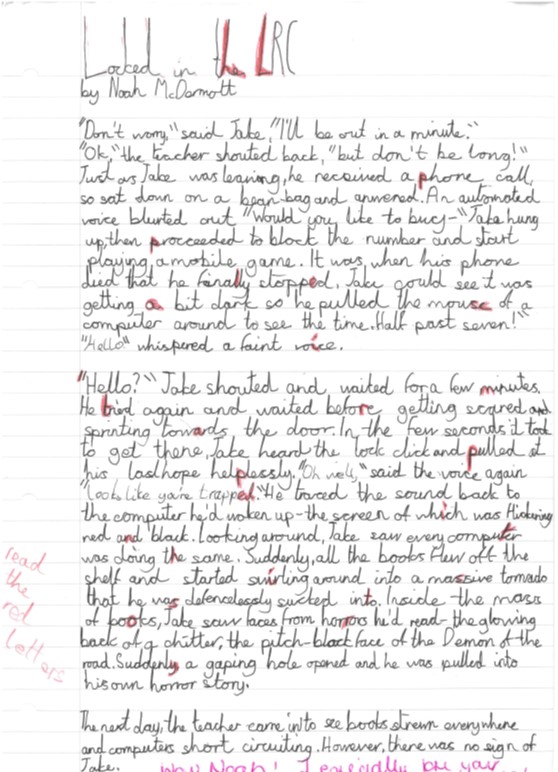 Locked in the LRC
by Noah McDermott
"Don't worry," said Jake, "I'll be out in a minute."
"Ok," the teacher shouted back, "but don't be long!"
Just as Jake was leaving, he received a phone call,
so sat down on a bean-bag and answered. An automated
voice blurted out "Would you like to buy-" Jake hung
up, then proceeded to block the number and start
playing a mobile game. It was, when his phone
died that he finally stopped. Jake could see it was
getting a bit dark so he pulled the mouse of a
computer around to see the time. Half past seven!"
"Hello" whispered a faint voice.
"Hello?" Jake shouted and waited for a few minutes.
He tried again and waited before getting scared and
sprinting towards the door. In the few seconds it took
to get there, Jake heard the lock click and pulled at
his last hope helplessly. "Oh well," said the voice again
"Looks like you're trapped." He traced the sound back to
the computer he'd woken up-the screen of which was flickering
red and black. Looking around, Jake saw every computer
was doing the same. Suddenly, all the books flew off the
shelf and started swirling around into a massive tornado
that he was defencelessly sucked into. Inside the mass
of books, Jake saw faces from horrors he'd read-the glowing
back of a the pitch-black face of the Demon of the
road. Suddenly a gaping hole opened and he was pulled into
his own horror story.
read
the
red
letters
The next day, the teacher came in to see books strewn everywhere
and computers short circuiting. However, there was no sign of
Jake.
Wow Noah! I especially like your